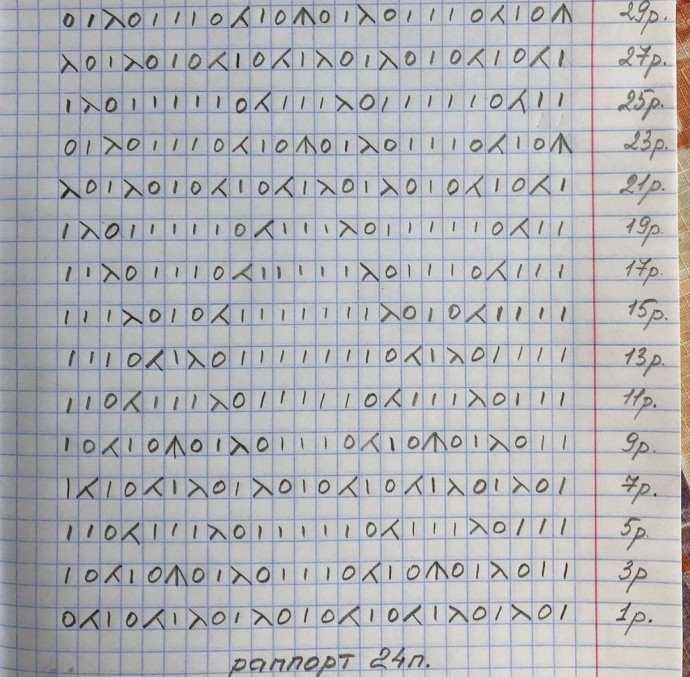 0 1 λ 0 1 1 1 0 ⋌ 1 0 ↑ 0 1 λ 0 1 1 1 0 ⋌ 1 0 ↑ 29р.
λ 0 1 λ 0 1 0 ⋌ 1 0 ⋌ 1 λ 0 1 λ 0 1 0 ⋌ 1 0 ⋌ 1 27р.
1 λ 0 1 1 1 1 1 0 ⋌ 1 1 1 λ 0 1 1 1 1 1 0 ⋌ 1 1 25р.
0 1 λ 0 1 1 1 0 ⋌ 1 0 ↑ 0 1 λ 0 1 1 1 0 ⋌ 1 0 ↑ 23р.
λ 0 1 λ 0 1 0 ⋌ 1 0 ⋌ 1 λ 0 1 λ 0 1 0 ⋌ 1 0 ⋌ 1 21р.
1 λ 0 1 1 1 1 1 0 ⋌ 1 1 1 λ 0 1 1 1 1 1 0 ⋌ 1 1 19р.
1 1 λ 0 1 1 1 0 ⋌ 1 1 1 1 1 λ 0 1 1 1 0 ⋌ 1 1 1 17р.
1 1 1 λ 0 1 0 ⋌ 1 1 1 1 1 1 1 λ 0 1 0 ⋌ 1 1 1 1 15р.
1 1 1 0 ⋌ 1 λ 0 1 1 1 1 1 1 1 0 ⋌ 1 λ 0 1 1 1 1 13р.
1 1 0 ⋌ 1 1 1 λ 0 1 1 1 1 1 0 ⋌ 1 1 1 λ 0 1 1 1 11р.
1 0 ⋌ 1 0 ↑ 0 1 λ 0 1 1 1 0 ⋌ 1 0 ↑ 0 1 λ 0 1 1 9р.
1 ⋌ 1 0 ⋌ 1 λ 0 1 λ 0 1 0 ⋌ 1 0 ⋌ 1 λ 0 1 λ 0 1 7р.
1 1 0 ⋌ 1 1 1 λ 0 1 1 1 1 1 0 ⋌ 1 1 1 λ 0 1 1 1 5р.
1 0 ⋌ 1 0 ↑ 0 1 λ 0 1 1 1 0 ⋌ 1 0 ↑ 0 1 λ 0 1 1 3р
0 ⋌ 1 0 ⋌ 1 λ 0 1 λ 0 1 0 ⋌ 1 0 ⋌ 1 λ 0 1 λ 0 1 1р.
раппорт 24п.